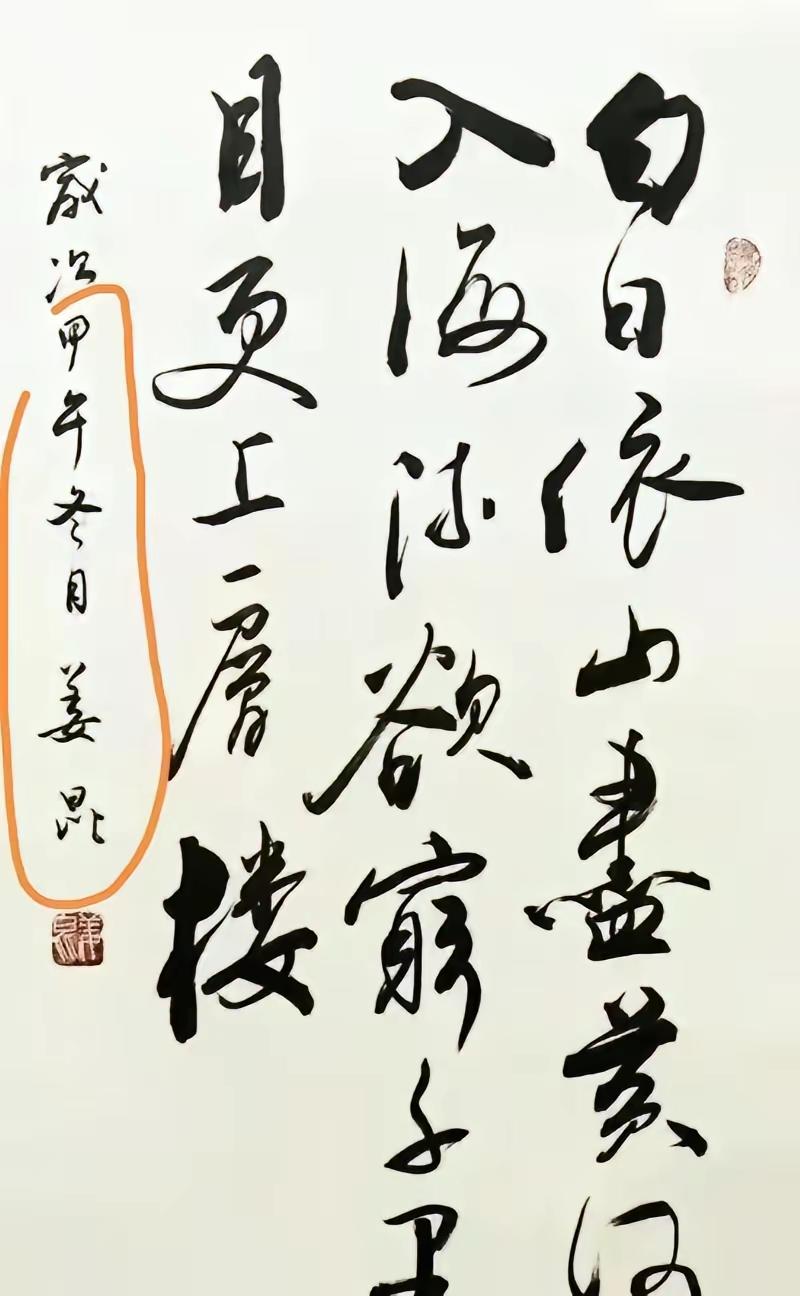 白日依山盡黄河
入海流欲窮千里
目更上一層楼
歲次甲午冬月 姜昆
姜昆